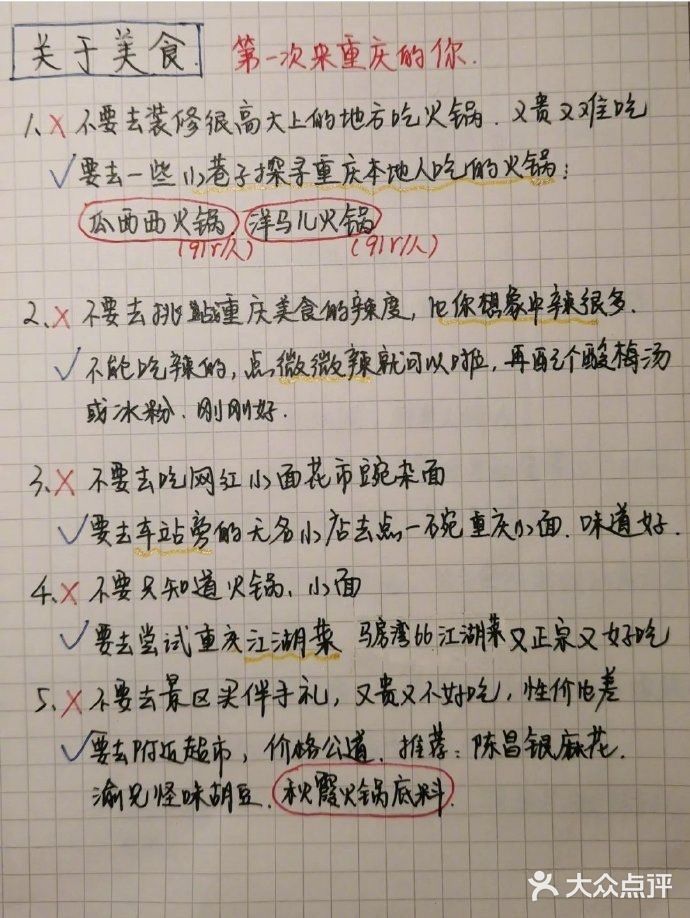 关于美食. 第一次来重庆的你.
1、× 不要去装修很高大上的地方吃火锅. 又贵又难吃
✓ 要去一些小巷子探寻重庆本地人吃的火锅：
瓜西西火锅 洋马儿火锅
(91r/人) (91r/人)
2、× 不要去挑战重庆美食的辣度, 比你想象中辣很多.
✓ 不能吃辣的, 点微微辣就可以啦, 再配个酸梅汤
或冰粉. 刚刚好.
3、× 不要去吃网红小面花市豌杂面
✓ 要去车站旁的无名小店去点一碗重庆小面. 味道好.
4、× 不要只知道火锅、小面
✓ 要去尝试重庆江湖菜 马房湾66江湖菜又正宗又好吃
5、× 不要去景区买伴手礼, 又贵又不好吃, 性价比差
✓ 要去附近超市, 价格公道. 推荐：陈昌银麻花.
渝兄怪味胡豆. 秋霞火锅底料.
大众点评